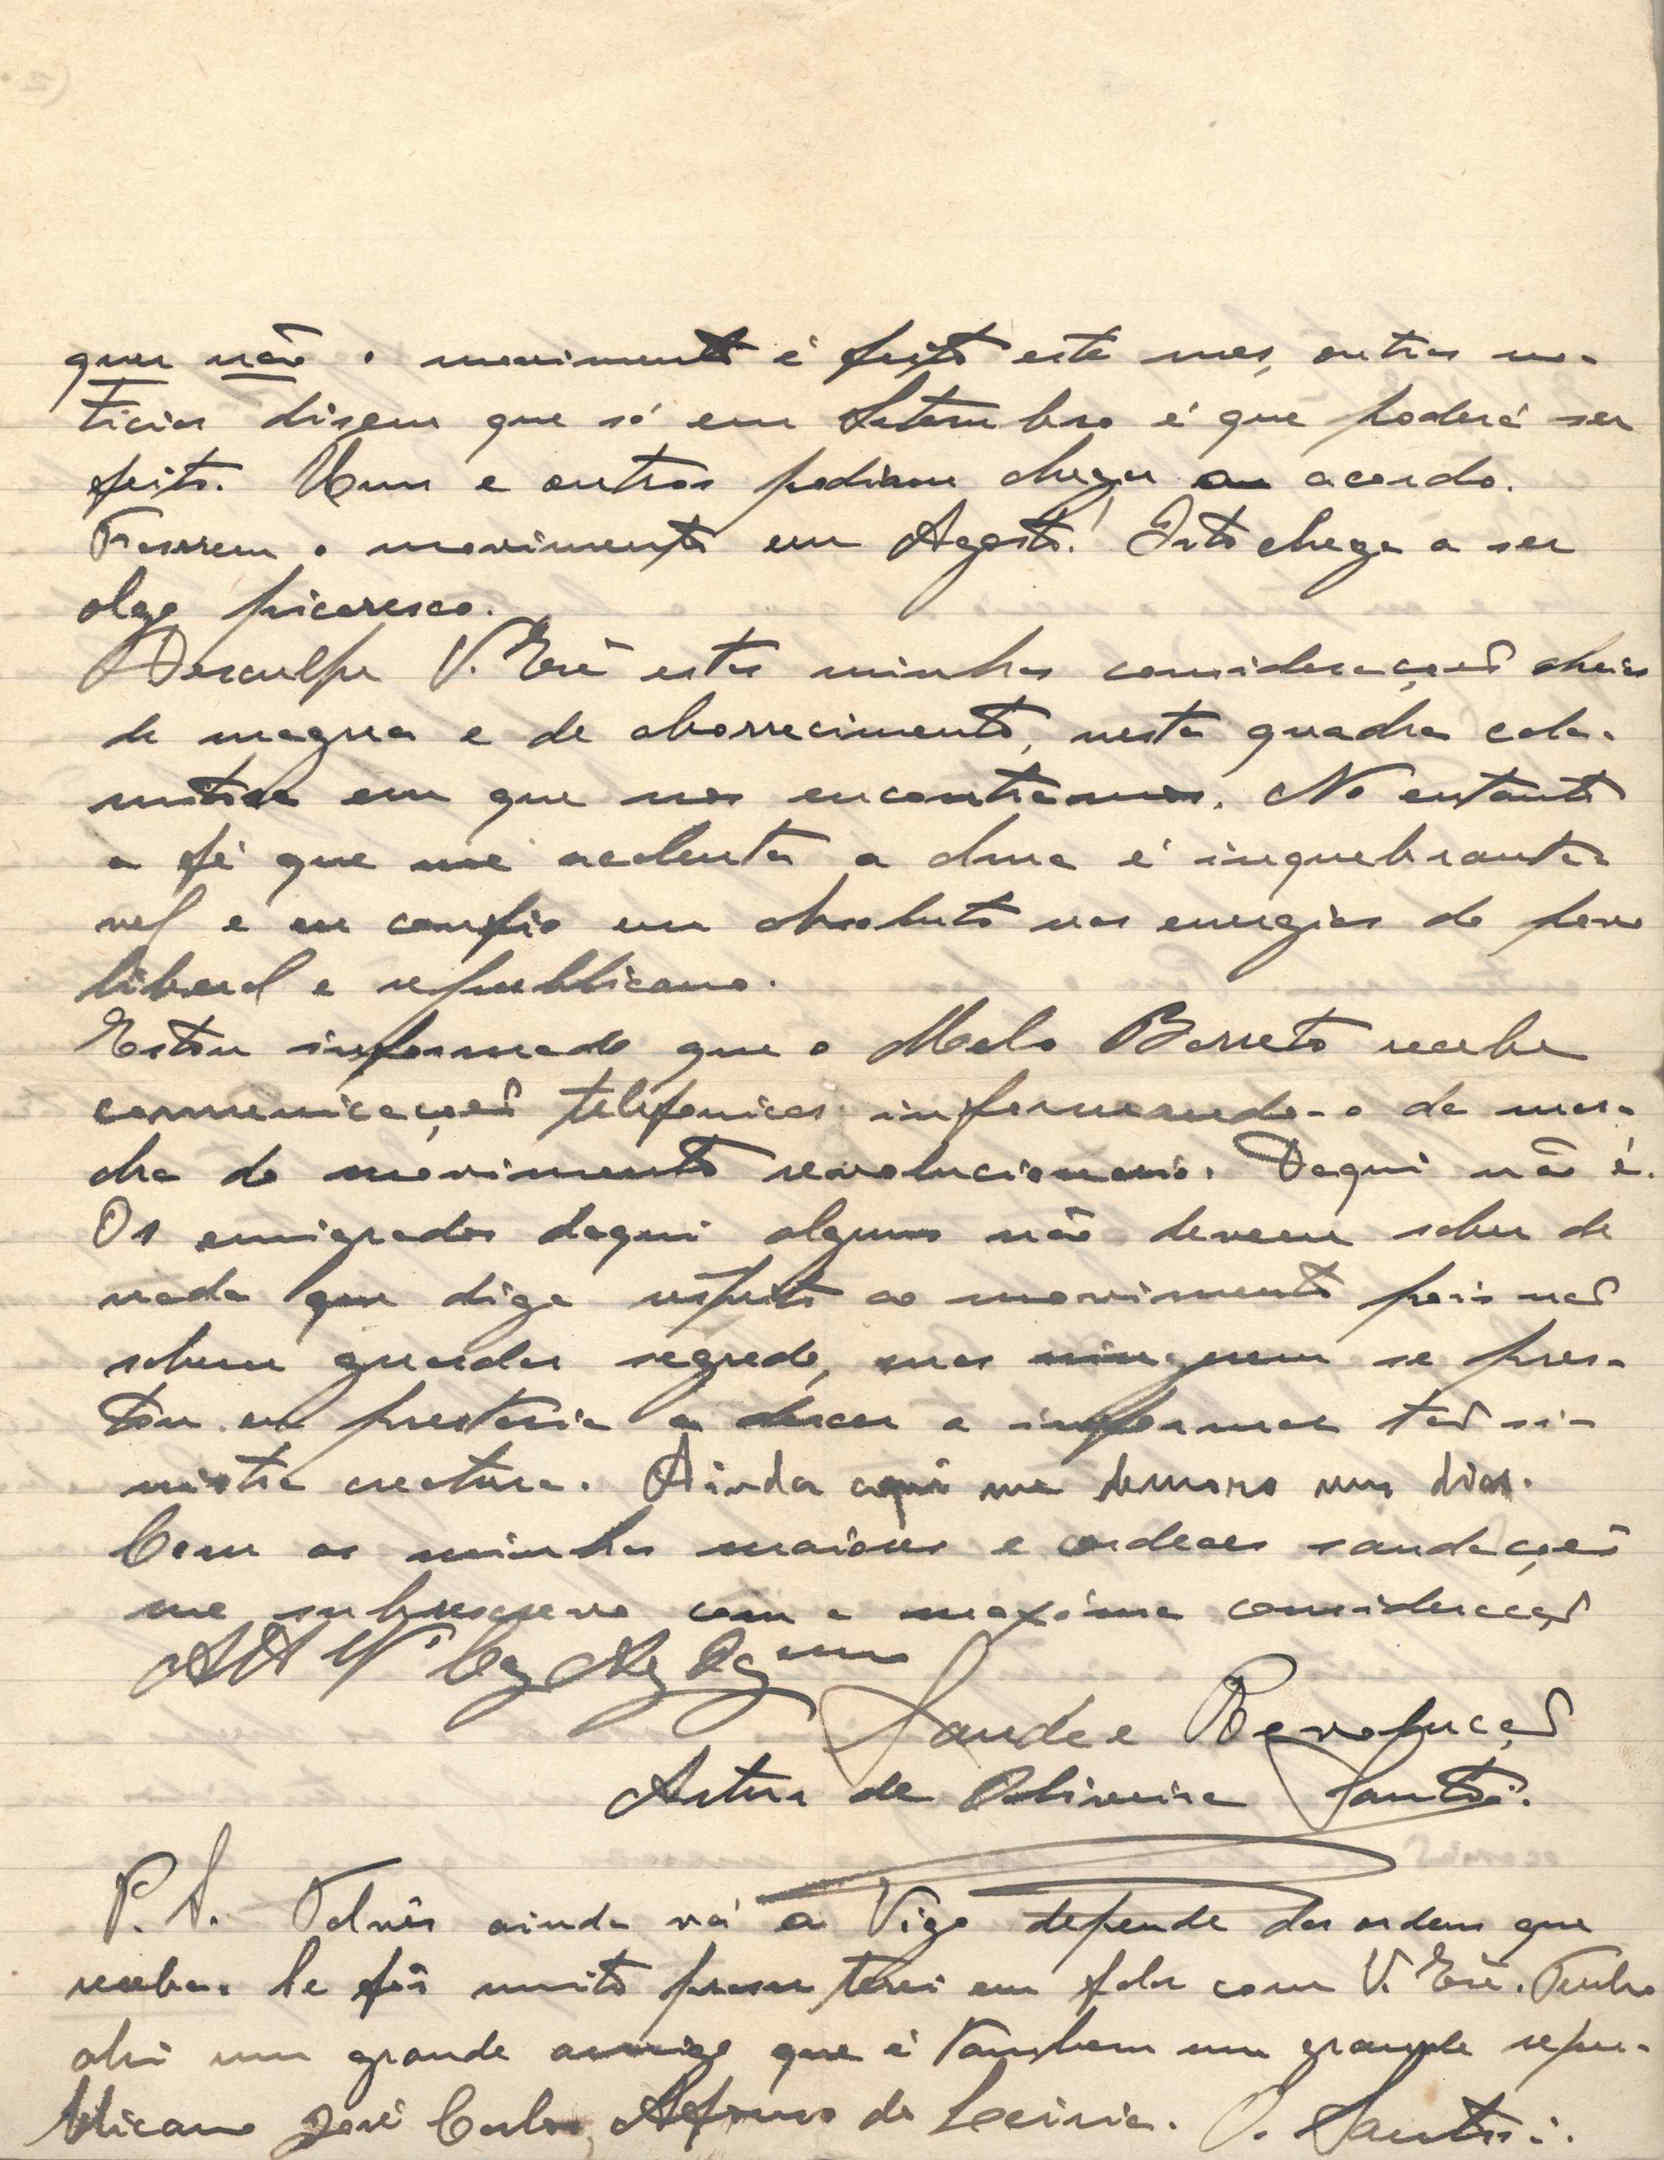 que não o movimento é feito este mes, outras no-
ticias disem que só em Setembro é que poderá ser
feito. Uns e outros podiam chegar a um acordo.
Fasiam o movimento em Agosto! Isto chega a ser
algo picaresco.
Desculpe V. Exê estas minhas considerações cheias
de magua e de aborrecimento, nesta quadra cala-
mitosa em que nos encontramos. No entanto
a fé que me acalenta a alma é inquebranta-
vel e eu confio em absoluto nas energias do povo
liberal e republicano.
Estou informado que o Melo Barreto recebe
comunicações telefonicas informando-o da mar-
cha do movimento revolucionario. Daqui não é.
Os emigrados daqui alguns não devem saber de
nada que diga respeito ao movimento pois não
sabem guardar segredo, mas ninguem se pres-
tou ou prestaria a descer a informar tão si-
nistra creatura. Ainda aqui me demoro uns dias.
Com as minhas maiores e cordeaes saudações
me subrescrevo com a maxima consideração
Saude e Revolução
Artur de Oliveira Santos.
P. S. Talvês ainda vá a Vigo depende das ordens que
receba. Se fôr muito praser terei em falar com V. Exê. Tenho
ahi um grande amigo que é tambem um grande repu-
blicano José Carlos Afonso de Leiria. O. Santos.